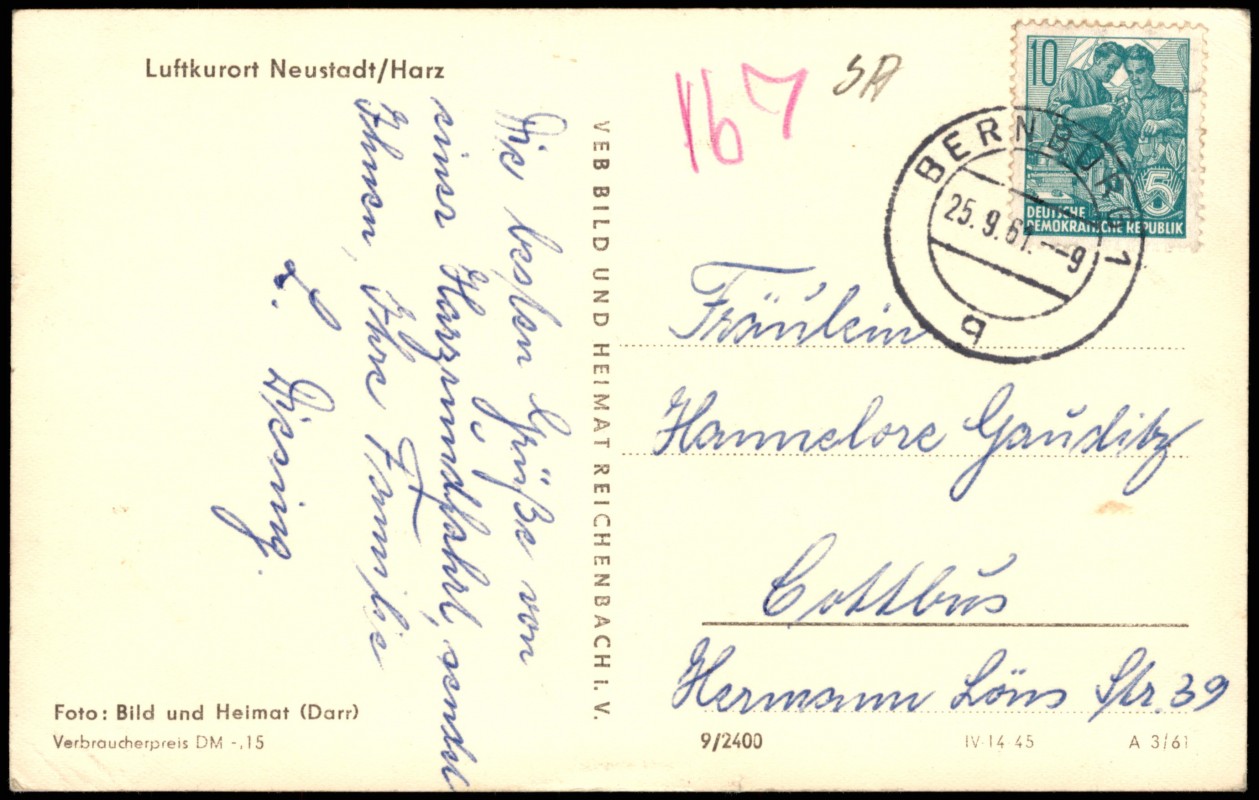 Luftkurort Neustadt/Harz
Die besten Grüße von
einer Harzrundfahrt, sendet
Ihnen, Ihre Familie
Foto: Bild und Heimat (Darr)
Verbraucherpreis DM -,15
VEB BILD UND HEIMAT REICHENBACH I. V.
167
SA
10
DEUTSCHE
DEMOKRATISCHE REPUBLIK
5
BERNBURG 1
25.9.61.--9
q
Fräulein
Hannelore Gauditz
Cottbus
Hermann Löns Str. 39
9/2400
IV-14-45
A 3/61